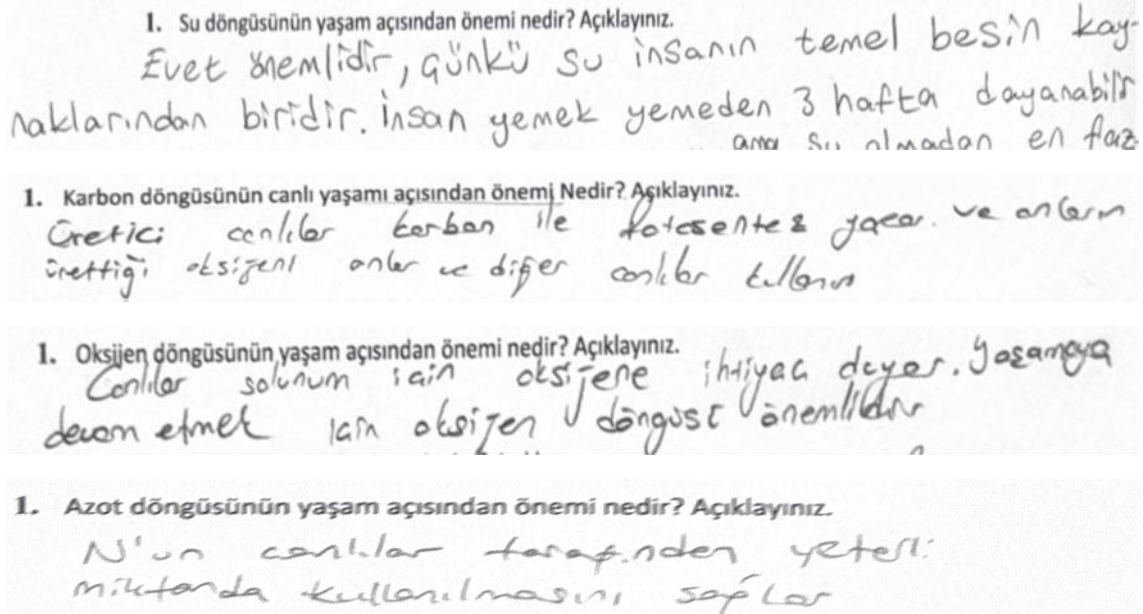 1. Su döngüsünün yaşam açısından önemi nedir? Açıklayınız.
Evet önemlidir, çünkü su insanın temel besin kay-
naklarından biridir. İnsan yemek yemeden 3 hafta dayanabilir
ama su olmadan en faz
1. Karbon döngüsünün canlı yaşamı açısından önemi Nedir? Açıklayınız.
Üretici canlılar karbon ile fotosentez yapar. ve onların
ürettiği oksijeni onlar ve diğer canlılar kullanır
1. Oksijen döngüsünün yaşam açısından önemi nedir? Açıklayınız.
Canlılar solunum için oksijene ihtiyaç duyar. Yaşamaya
devam etmek için oksijen döngüsü önemlidir
1. Azot döngüsünün yaşam açısından önemi nedir? Açıklayınız.
N'un canlılar tarafından yeterli
miktarda kullanılmasını sağlar